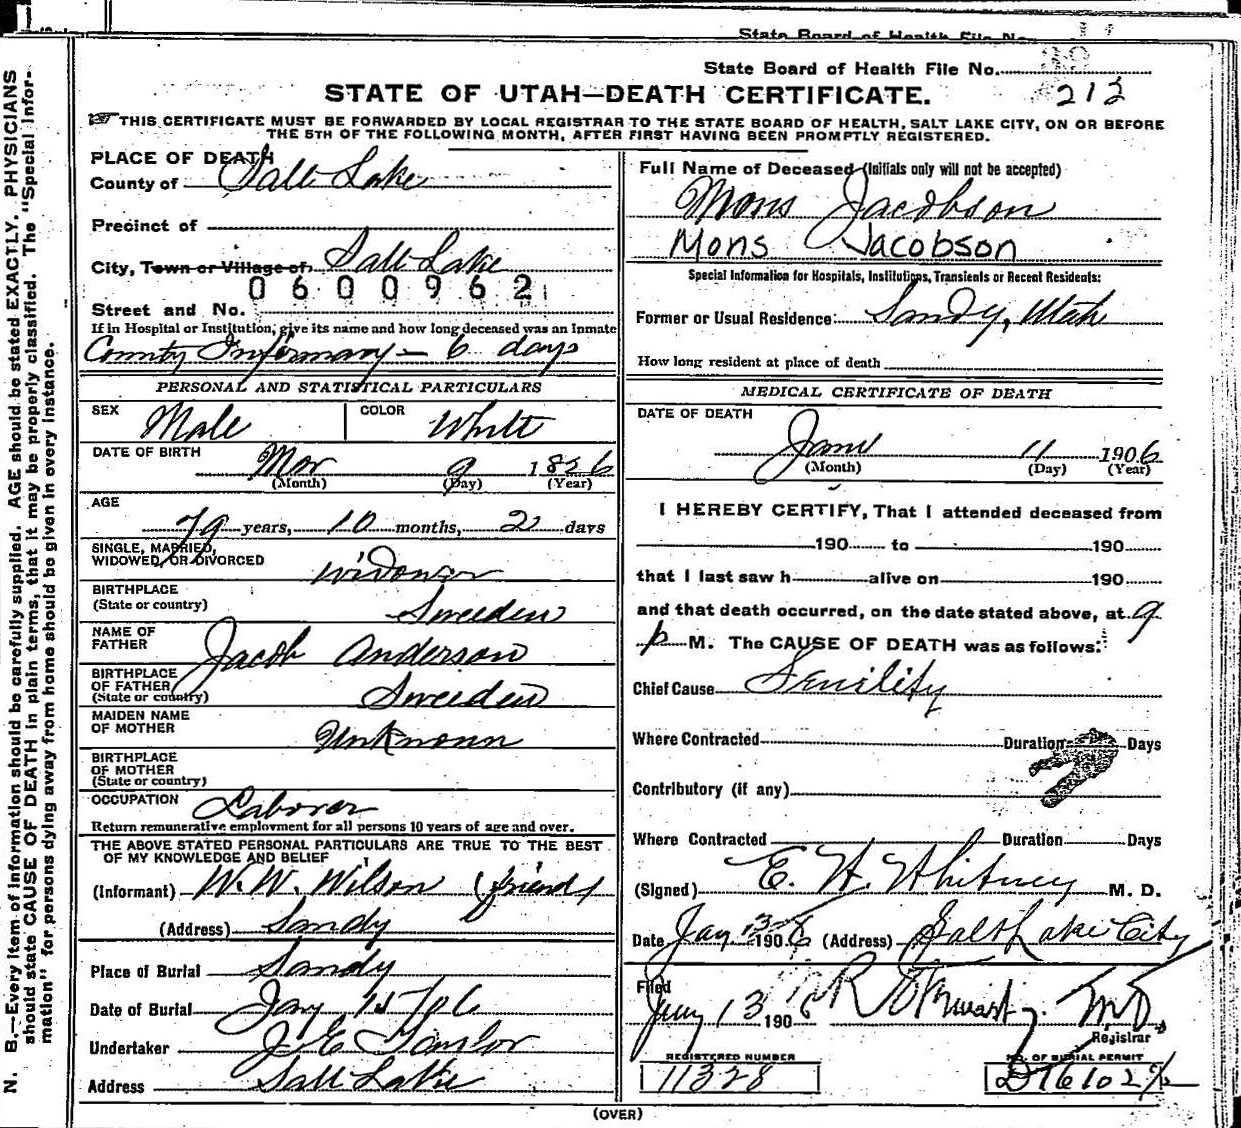 State Board of Health File No.
State Board of Health File No.
212
STATE OF UTAH—DEATH CERTIFICATE.
THIS CERTIFICATE MUST BE FORWARDED BY LOCAL REGISTRAR TO THE STATE BOARD OF HEALTH, SALT LAKE CITY, ON OR BEFORE
THE 5TH OF THE FOLLOWING MONTH, AFTER FIRST HAVING BEEN PROMPTLY REGISTERED.
N. B.—Every item of information should be carefully supplied. AGE should be stated EXACTLY. PHYSICIANS
should state CAUSE OF DEATH in plain terms, that it may be properly classified. The "Special Infor-
mation" for persons dying away from home should be given in every instance.
PLACE OF DEATH
County of Salt Lake
Precinct of
City, Town or Village of Salt Lake
0600962
Street and No.
If in Hospital or Institution, give its name and how long deceased was an inmate
County Infirmary – 6 days
PERSONAL AND STATISTICAL PARTICULARS
SEX Male COLOR White
DATE OF BIRTH Mar 9 1826
(Month) (Day) (Year)
AGE
79 years, 10 months, 2 days
SINGLE, MARRIED,
WIDOWED, OR DIVORCED Widower
BIRTHPLACE
(State or country) Sweeden
NAME OF
FATHER Jacob Anderson
BIRTHPLACE
OF FATHER
(State or country) Sweeden
MAIDEN NAME
OF MOTHER Unknown
BIRTHPLACE
OF MOTHER
(State or country)
OCCUPATION Laborer
Return remunerative employment for all persons 10 years of age and over.
THE ABOVE STATED PERSONAL PARTICULARS ARE TRUE TO THE BEST
OF MY KNOWLEDGE AND BELIEF
(Informant) W. W. Wilson (friend)
(Address) Sandy
Place of Burial Sandy
Date of Burial Jany 15/06
Undertaker J E Taylor
Address Salt Lake
Full Name of Deceased (Initials only will not be accepted)
Mons Jacobson
Mons Jacobson
Special Information for Hospitals, Institutions, Transients or Recent Residents:
Former or Usual Residence: Sandy, Utah
How long resident at place of death
MEDICAL CERTIFICATE OF DEATH
DATE OF DEATH
Jany 11 1906
(Month) (Day) (Year)
I HEREBY CERTIFY, That I attended deceased from
190 to 190
that I last saw h alive on 190
and that death occurred, on the date stated above, at 9
p M. The CAUSE OF DEATH was as follows:
Chief Cause Senility
Where Contracted Duration Days
Contributory (if any)
Where Contracted Duration Days
(Signed) E. H. Whitney M. D.
Date Jany 1906 (Address) Salt Lake City
Filed
Jany 13 1906 MD
Registrar
REGISTERED NUMBER
11328
NO. OF BURIAL PERMIT
(OVER)